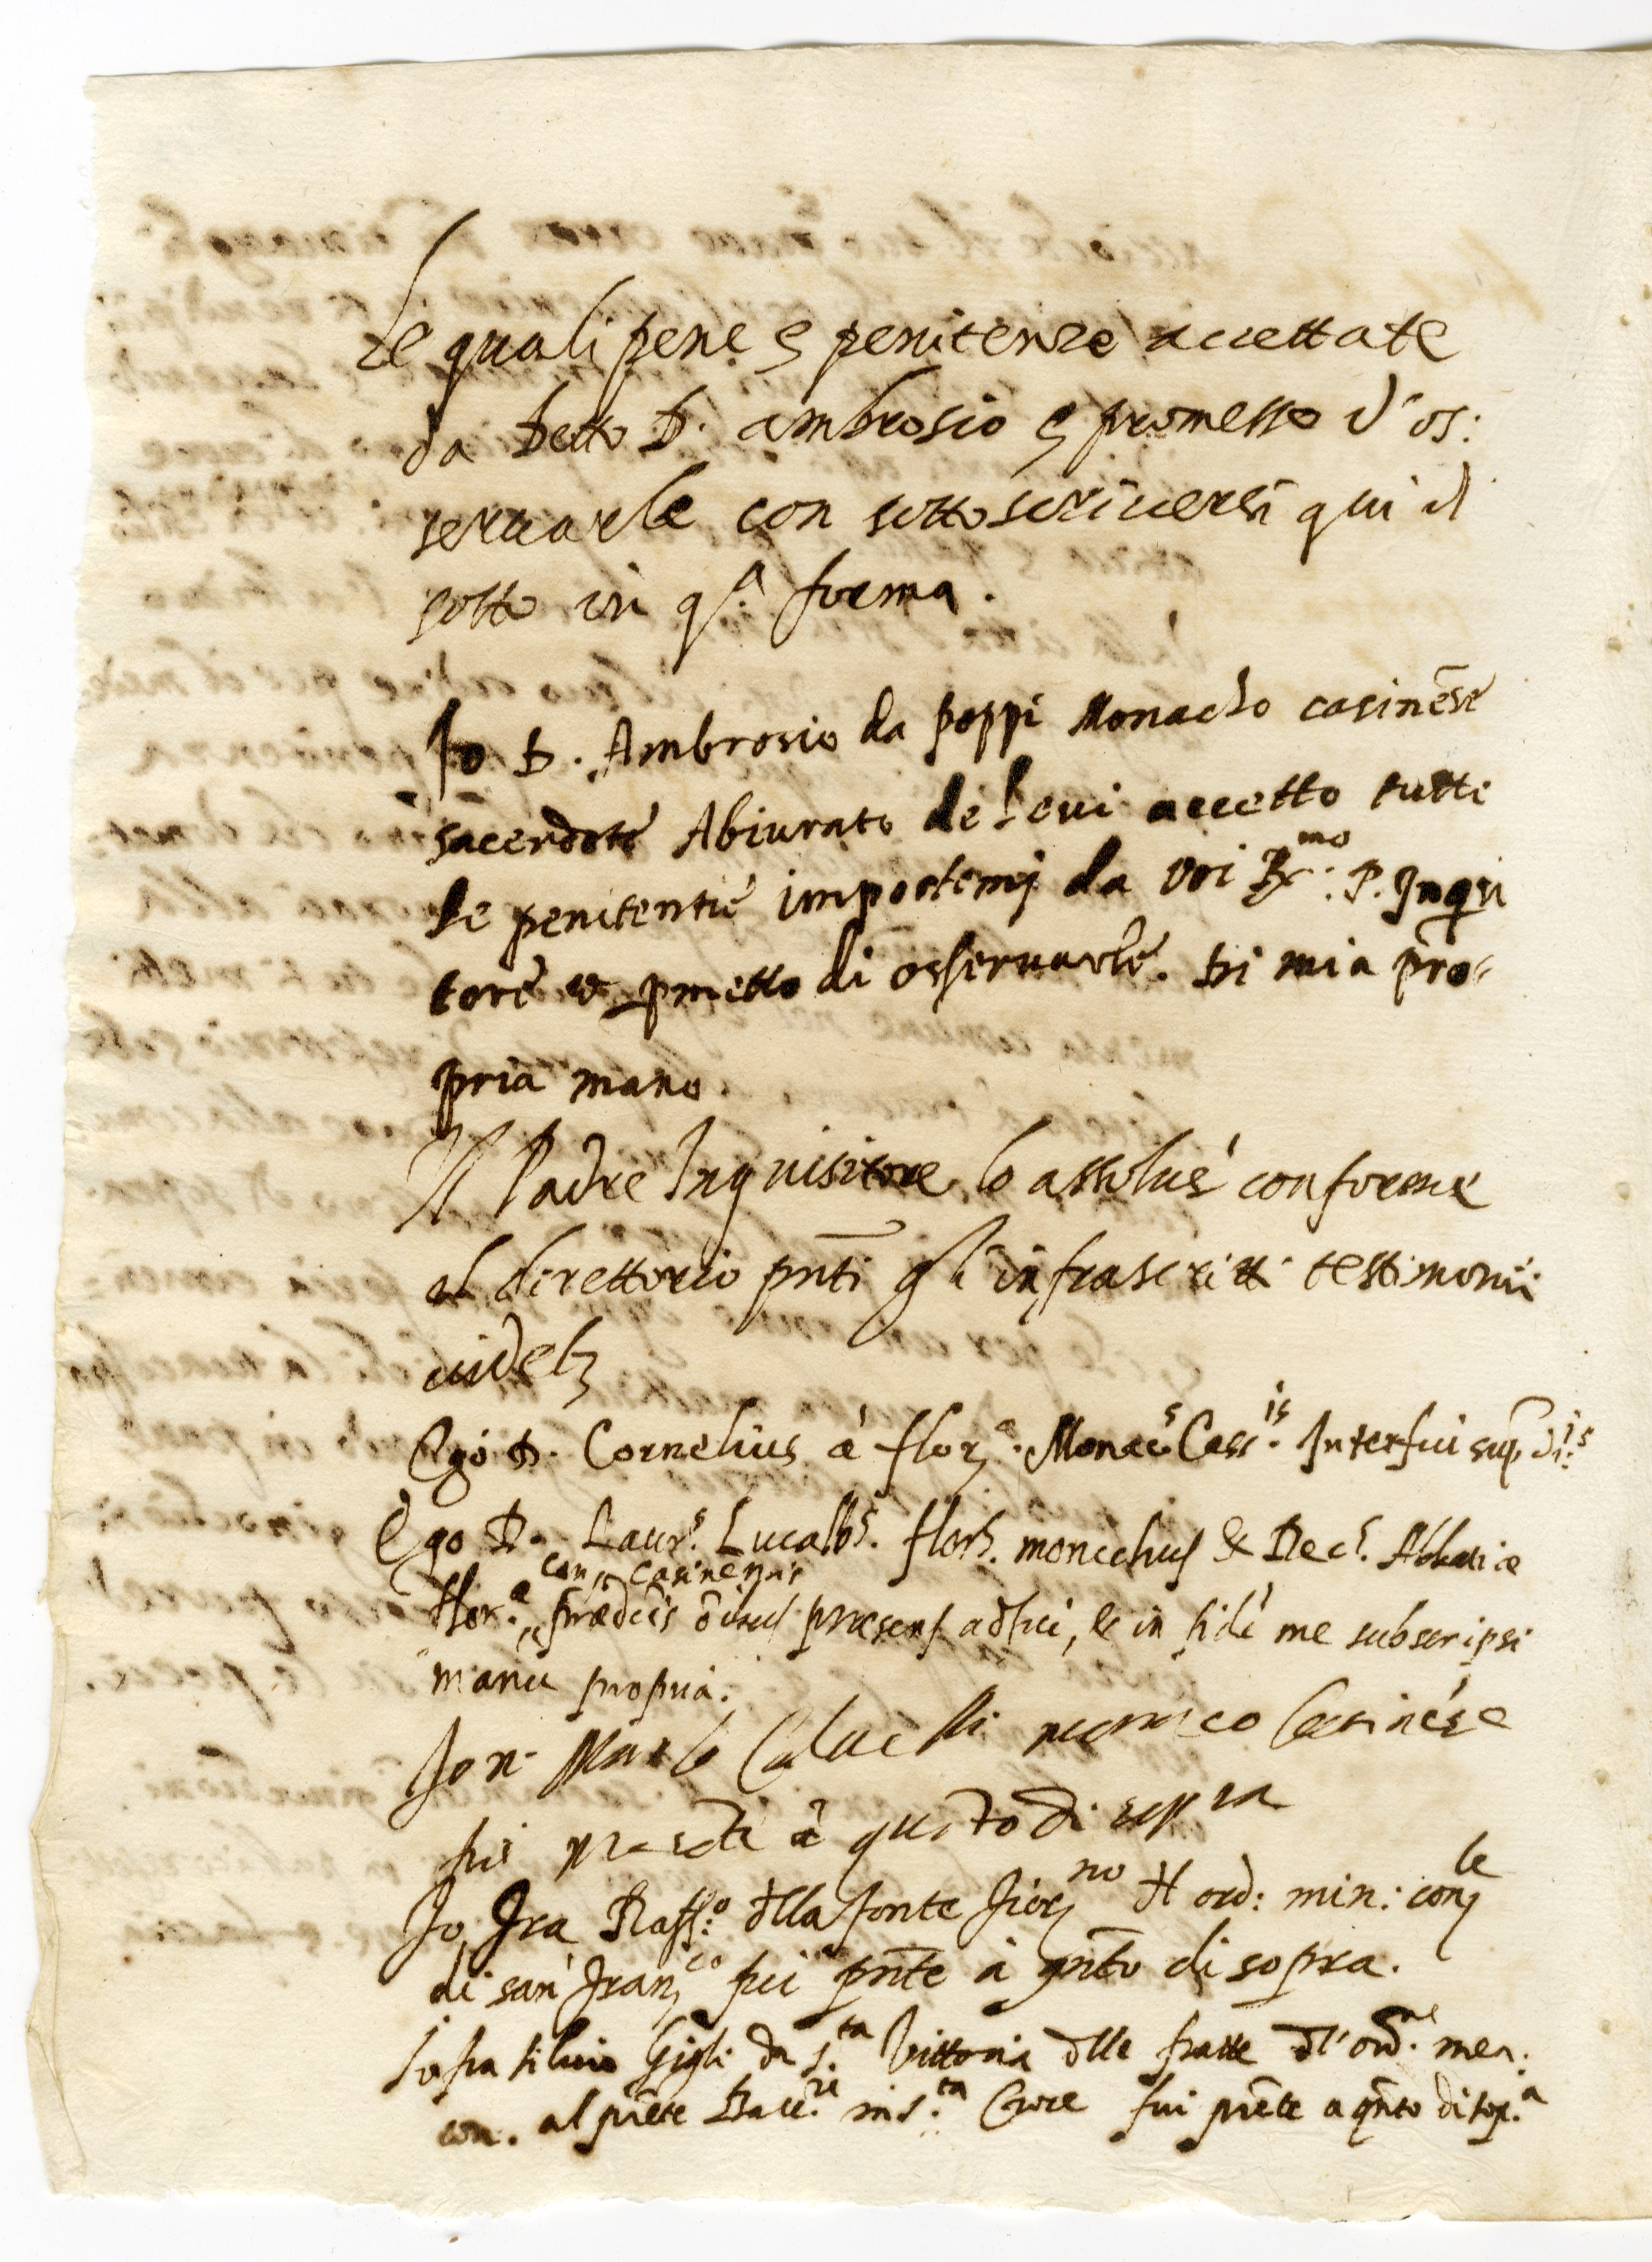 Le quali pene e penitenze accettate
da detto D. Ambrosio e promesso d'os:
servarle con sottoscriversi qui di
sotto in q.ª forma.
Io D. Ambrosio da poppi Monacho casinēse
sacerdote Abiurato de levi accetto tutte
le penitentie impostemi da voi R.mo P. Inqui
tore et pmetto di osservarle. Di mia pro-
pria mano.
Il Padre Inquisitore lo assolué conforme
al direttorio pn̄ti gl'infrascritti testimonii
videlz
Ego D. Cornelius à flor.ª Monac.s Cass.is Interfui sup.di.is
Ego D. Laur.s Lucalb.s flor. monachus & Dec.s Abbatiæ
flor.æ cong. Casinensis prædcīs oībus præsens adfui, & in fidē me subscripsi
manu propria.
Io n. monaco Casinēse
fui presēte à questo di sopra
Io fra Raff.o dlla fonte fior.no dl ord: min: con.le
di san Fran.co fui pn̄te à qn̄to di sopra.
Io fra Silvio Gigli da s.ta Vittoria dlle fratte dl'ord.ne men:
con. al pn̄te Bacc.re in s.ta Croce fui pn̄te a qn̄to di sop.a